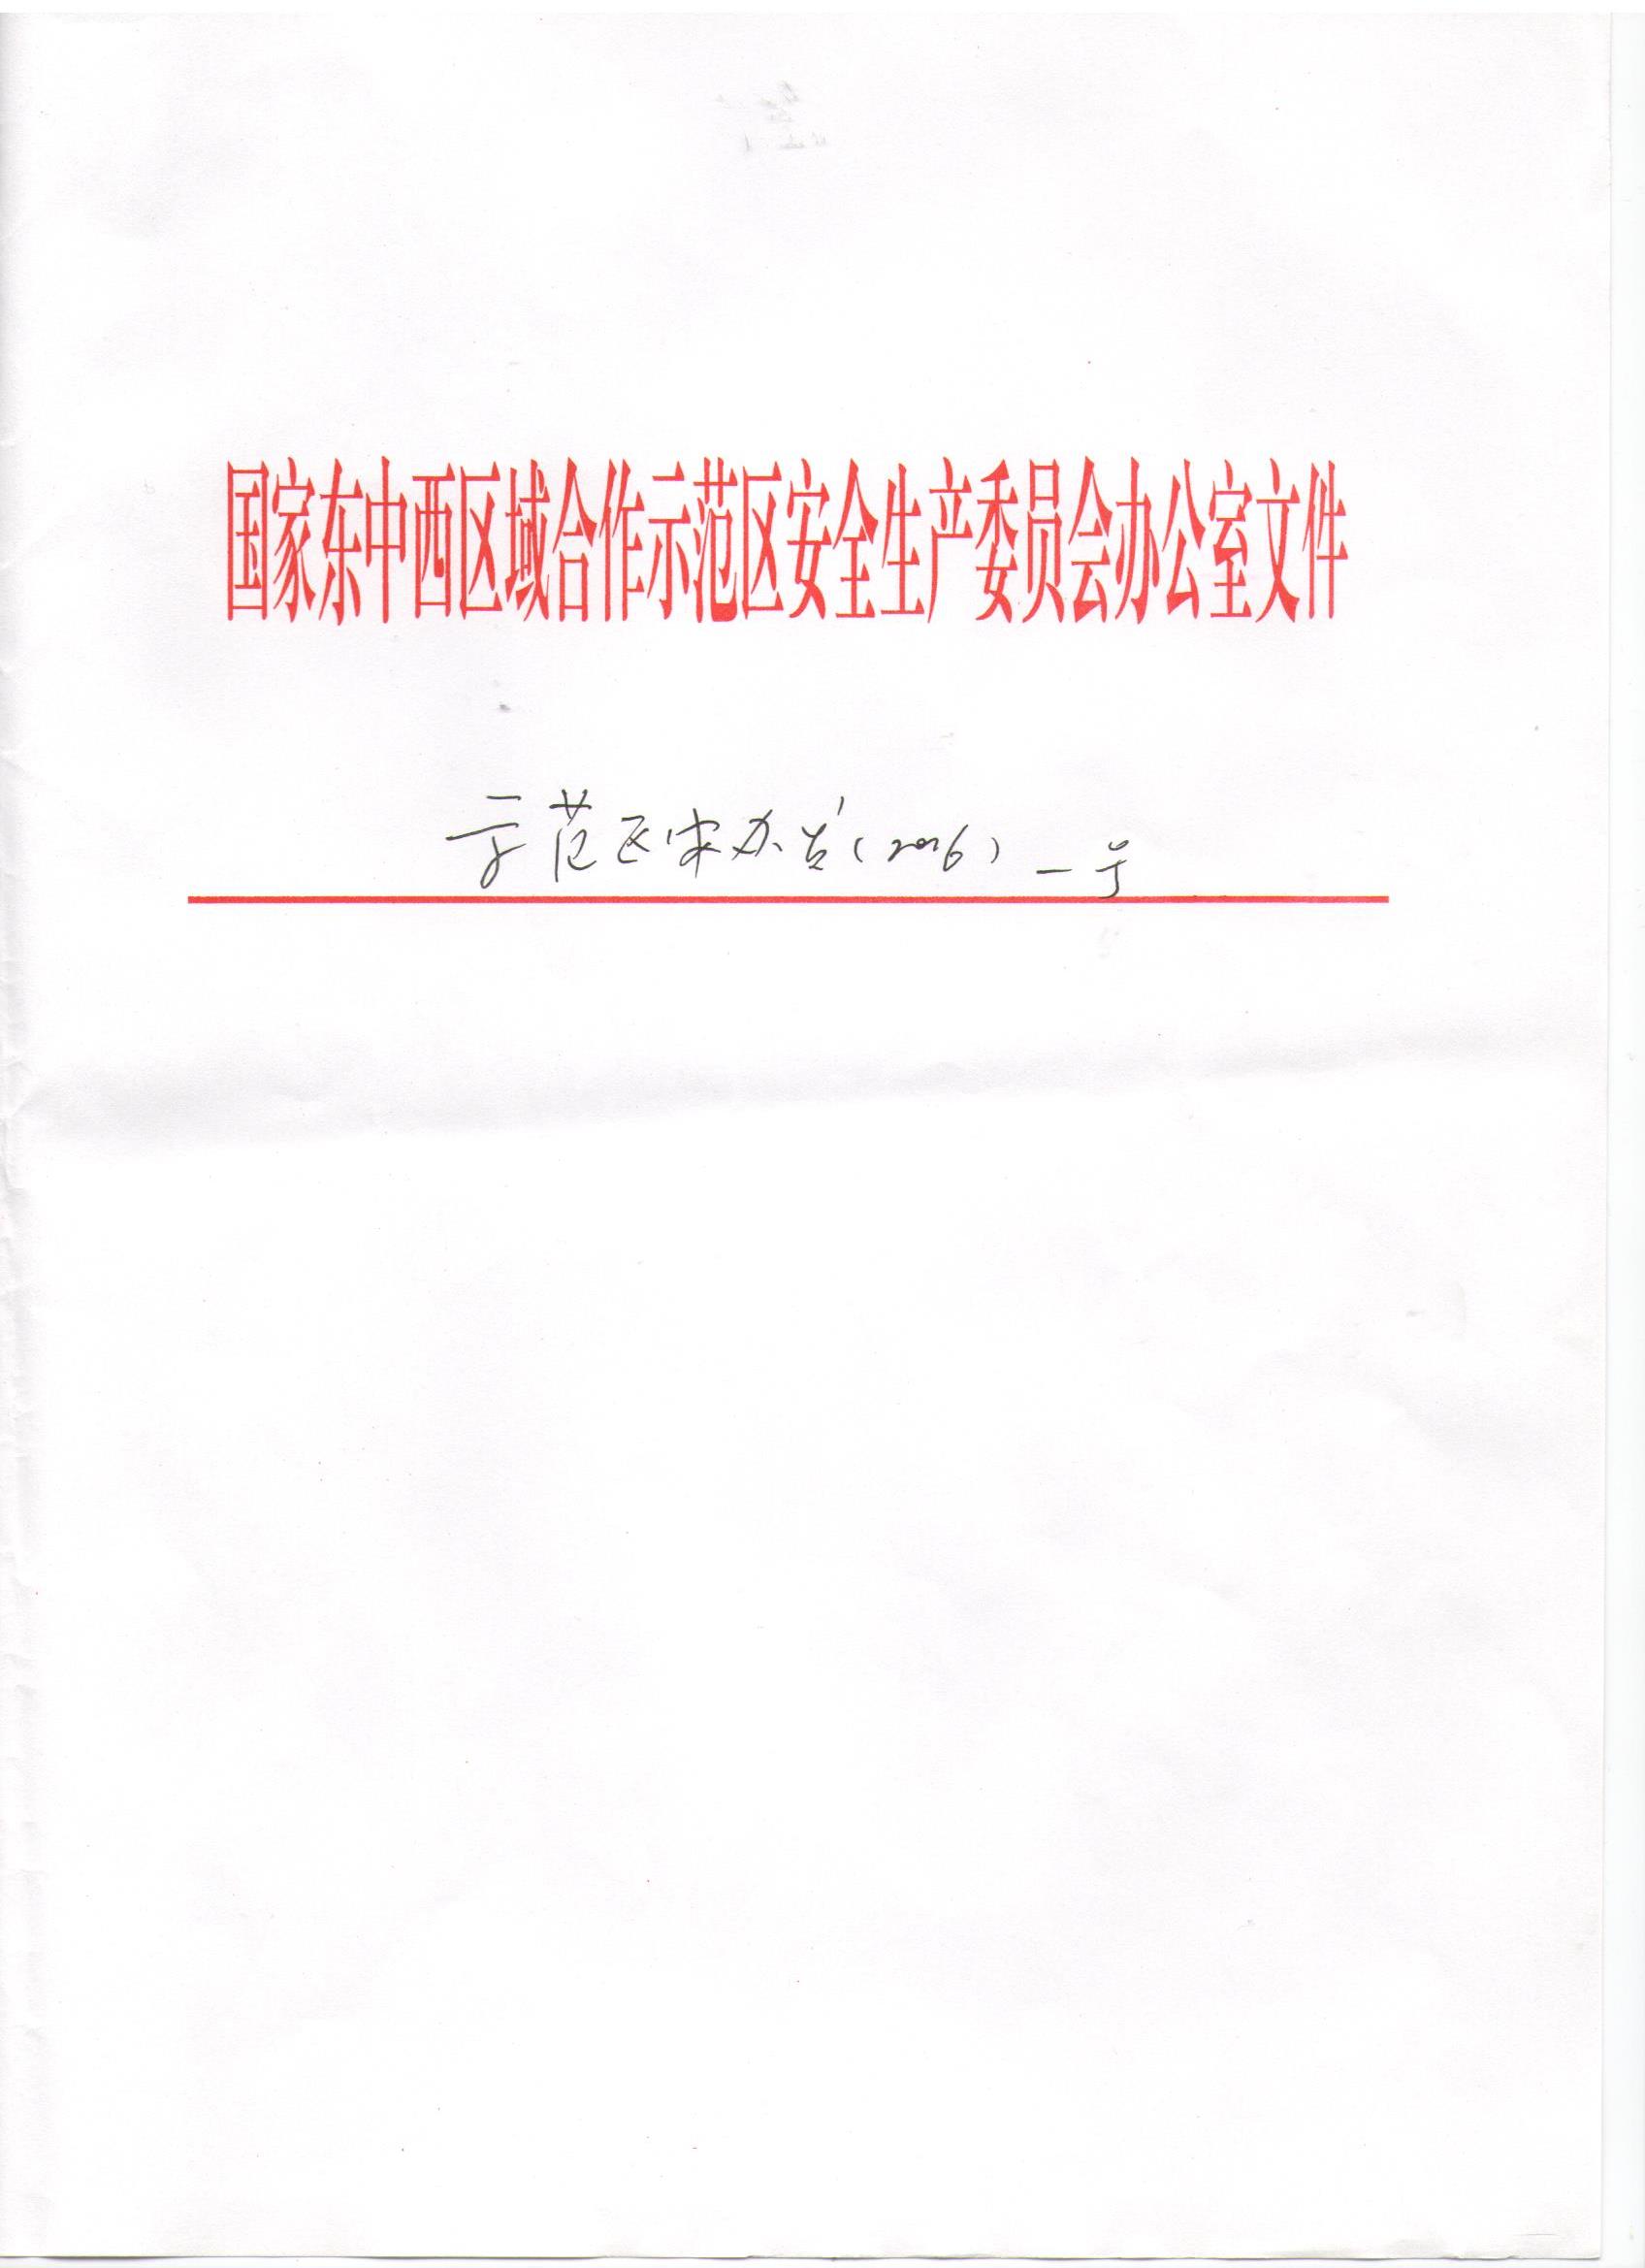 国家东中西区域合作示范区安全生产委员会办公室文件
示范区安办发(2016) 一号